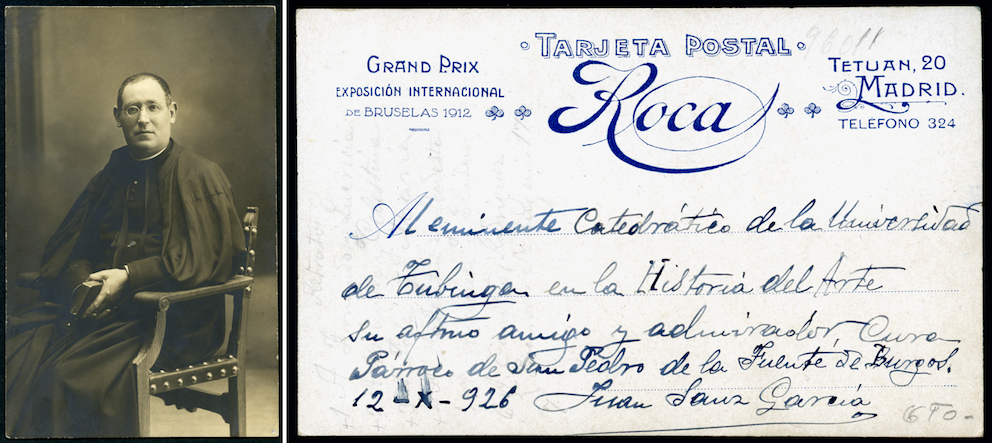 96011
TARJETA POSTAL
GRAND PRIX
EXPOSICIÓN INTERNACIONAL
DE BRUSELAS 1912
Roca
TETUAN, 20
MADRID.
TELÉFONO 324
Al eminente Catedrático de la Universidad
de Tubinga en la Historia del Arte
su aftmo amigo y admirador Cura
Párroco de San Pedro de la Fuente de Burgos.
12-X-926 Juan Sanz García